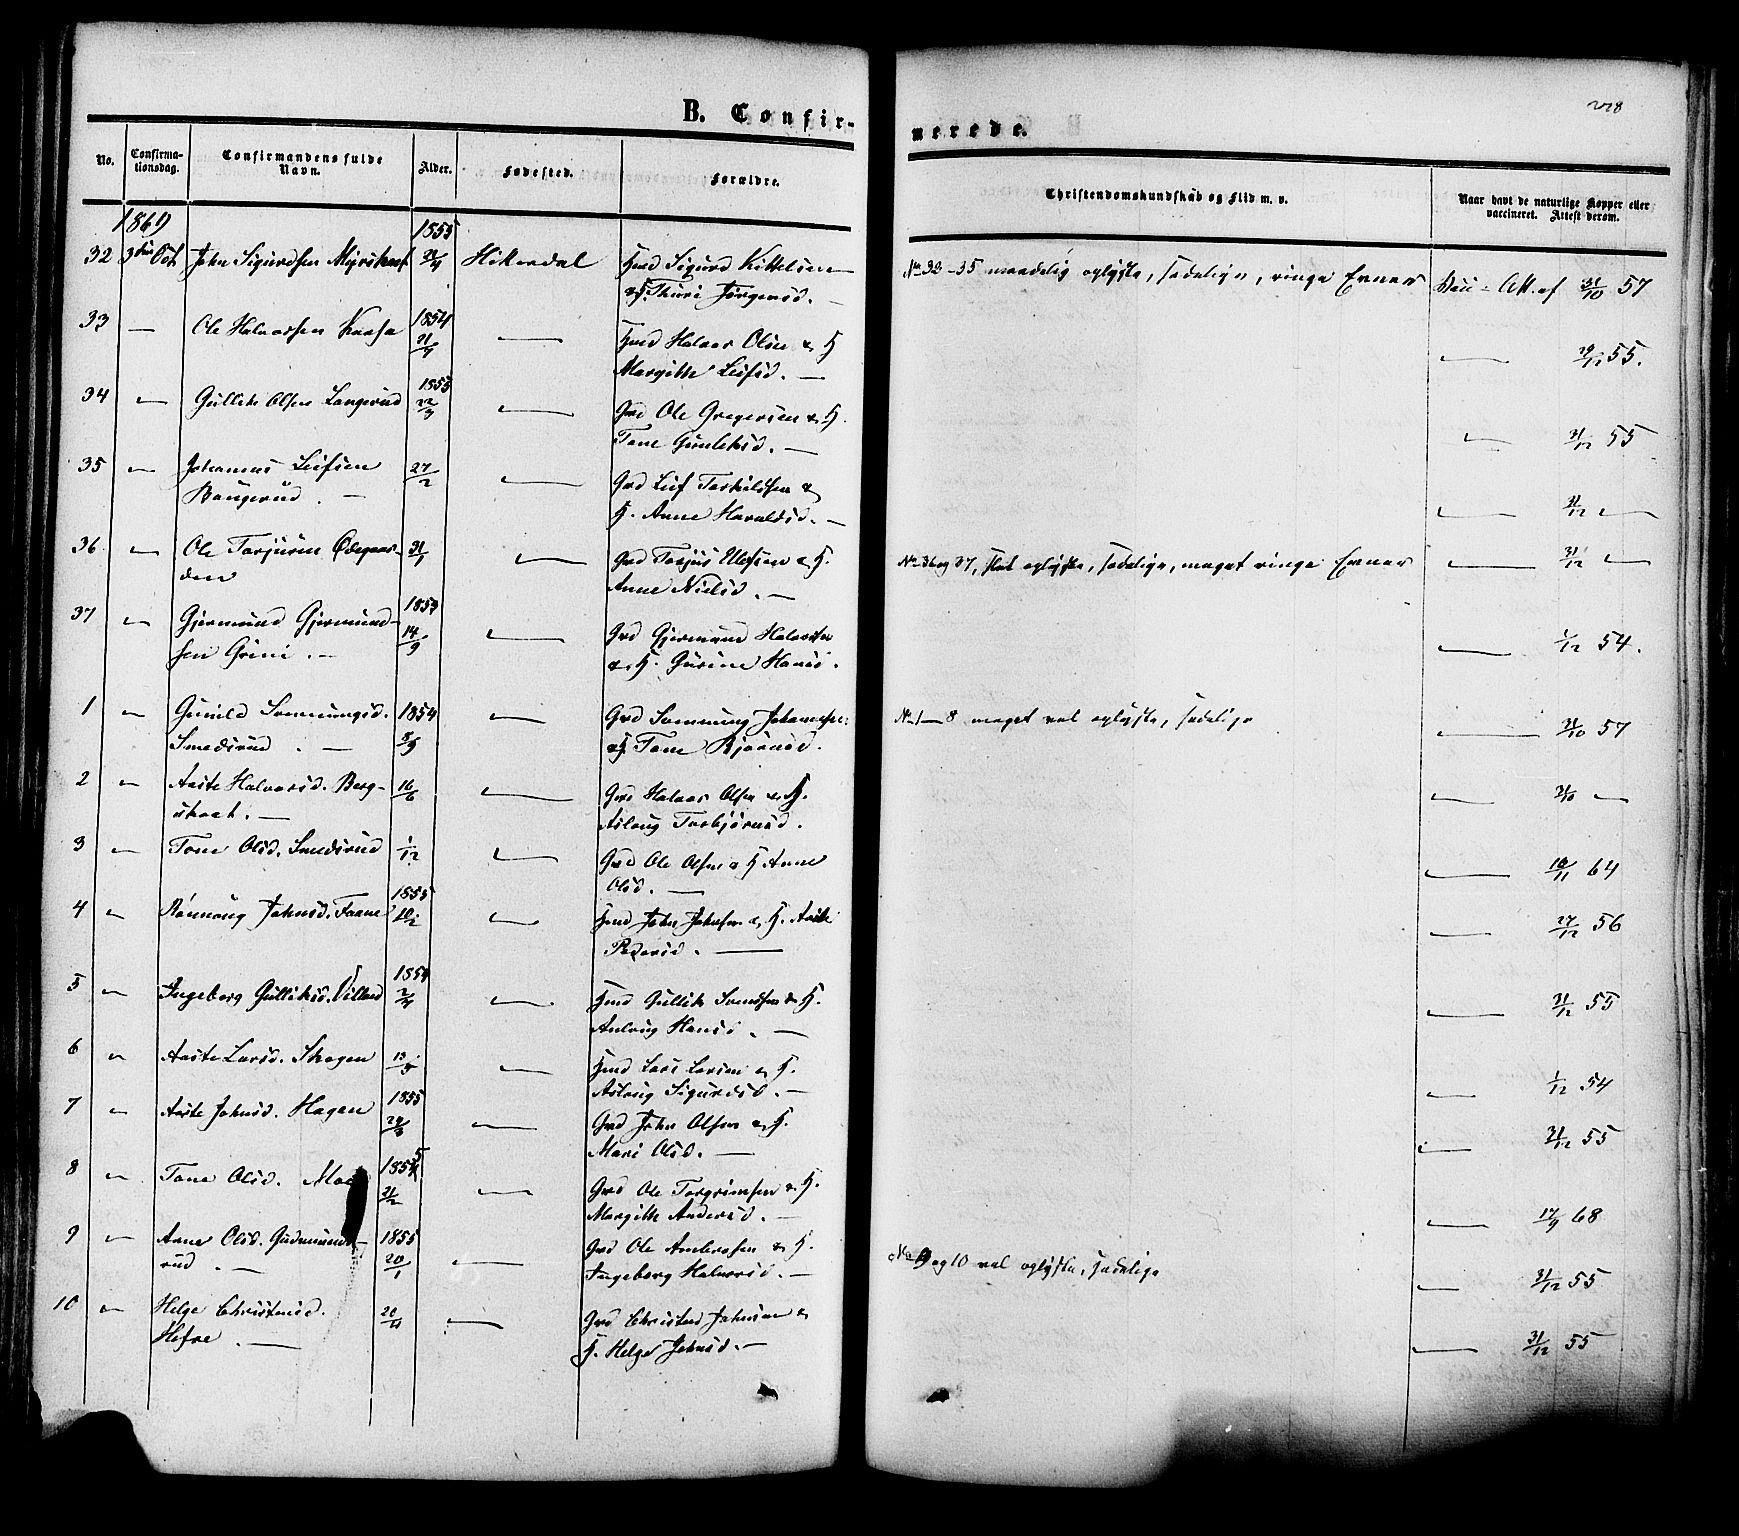 B. Confir-
merede.
228
No.
Confirma-
tionsdag.
Confirmandens fulde
Navn.
Alder.
Fødested.
Forældre.
Christendomskundskab og Flid m. v.
Naar havt de naturlige Kopper eller
vaccineret. Attest derom.
1869
1855
32 3die Oct. John Sigurdsen Hiterdal Hmd Sigurd Kittelsen
& H. Thuri Jørgensd. —
No 32-35 maadelig oplyste, sædelige, ringe Evner
Vacc. Att. af 31/10 57
33 — Ole Halvorsen Kaasa 1854 — Hmd Halvor Olsen & H
Margithe Leifsd. —
— 29/12 55.
34 — Gullik Olsen Langerud 1855 — Grd Ole Gregersen & H.
Tone Gunleksd. —
— 31/12 55
35 — Johannes Leifsen 27/2 — Grd Leif Torkildsen &
Baugerud. — H. Anne Haraldsd. —
— 31/12 —
36 — Ole Torjusen Ødegaar- 31/1 — Grd Torjus Ellefsen & H.
den Anne Nielsd. —
No 36 og 37, slet oplyste, sædelige, meget ringe Evner
— 31/12 —
37 — Gjermund Gjermund- 1853 14/9 — Grd Gjermund Halvorsen
sen Grini. — & H. Gurine Hansd.
— 1/12 54.
1 — Gunild Svennungsd. 1854 — Grd Svennung Johannesen
Smedsrud. — & H. Tone Bjørnsd.
No 1-8 meget vel oplyste, sædelige
— 31/10 57
2 — Aaste Halvorsd. Berg- 16/6 — Grd Halvor Olsen & H.
skaat. — Aslaug Torbjørnsd.
— 31/10 —
3 — Tone Olsd. Smedsrud 1/12 — Grd Ole Olsen & H Anne
Olsd. —
— 64
4 — Rønnaug Johnsd. Faane 1855 — Hmd John Johnsen & H. Aaste
Pedersd. —
— 27/12 56
5 — Ingeborg Gulliksd. Villand 1854 — Hmd Gullik Svendsen & H.
Aslaug Hansd. —
— 31/12 55
6 — Aaste Larsd. Skogen — Hmd Lars Larsen & H.
Aslaug Sigurdsd. —
— 1/12 54
7 — Aaste Johnsd. Hagen 1855 — Grd John Olsen & H.
Mari Olsd. —
— 31/12 55
8 — Tone Olsd. Moe 1855 31/2 — Grd Ole Torgrimsen & H.
Margithe Andersd. —
— 17/9 68
9 — Anne Olsd. Gudmunds- 1855 20/1 — Grd Ole Ambrosen & H.
rud. — Ingeborg Halvorsd. —
No 9 og 10 vel oplyste, sædelige
— 31/12 55
10 — Helge Christensd. 20/11 — Grd Christen Johnsen &
Hefre. — H. Helge Johnsd. —
— 31/12 55